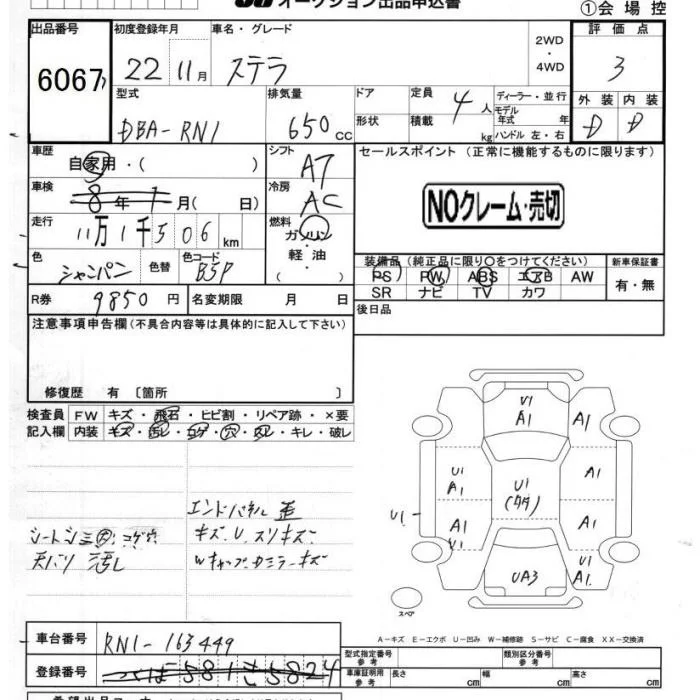 オークション出品申込書
①会場控
出品番号
6067
初度登録年月
22 11月
車名・グレード
ステラ
2WD
・
4WD
評価点
3
型式
DBA-RN1
排気量
650 cc
ドア
形状
定員
4人
積載
kg
ディーラー・並行
モデル年式 年
ハンドル 左・右
外装 内装
D D
車歴
自家用・( )
シフト
A7
セールスポイント (正常に機能するものに限ります)
NOクレーム・売切
車検
8年7月( 日)
冷房
AC
走行
11万1千506km
燃料
ガソリン
軽油
( )
色
シャンパン
色替
色コード
B5P
装備品 (純正品に限り○をつけてください)
PS PW ABS エアB AW
SR ナビ TV カワ
新車保証書
有・無
R券
9850円
名変期限 月 日
後日品
注意事項申告欄(不具合内容等は具体的に記入して下さい)
修復歴 有 〔箇所 〕
検査員記入欄
FW キズ・飛石・ヒビ割・リペア跡・×要
内装 キズ・汚レ・コゲ・穴・スレ・キレ・破レ
シートシミ穴コゲ穴
天バリ 汚レ
エンドパネル 歪
キズ、U、スリキズ
Wキャップ・カミラーキズ
U1
A1
A1
U1
A1
U1
(タタ)
A1
U1
A1
U1
A1
U1
A1
UA3
スペア
A－キズ E－エクボ U－凹み W－補修跡 S－サビ C－腐食 XX－交換済
車台番号
RN1-163449
登録番号
つくば581さ5824
型式指定番号
参考
類別区分番号
参考
車庫証明用
参考
長さ cm
幅 cm
高さ cm